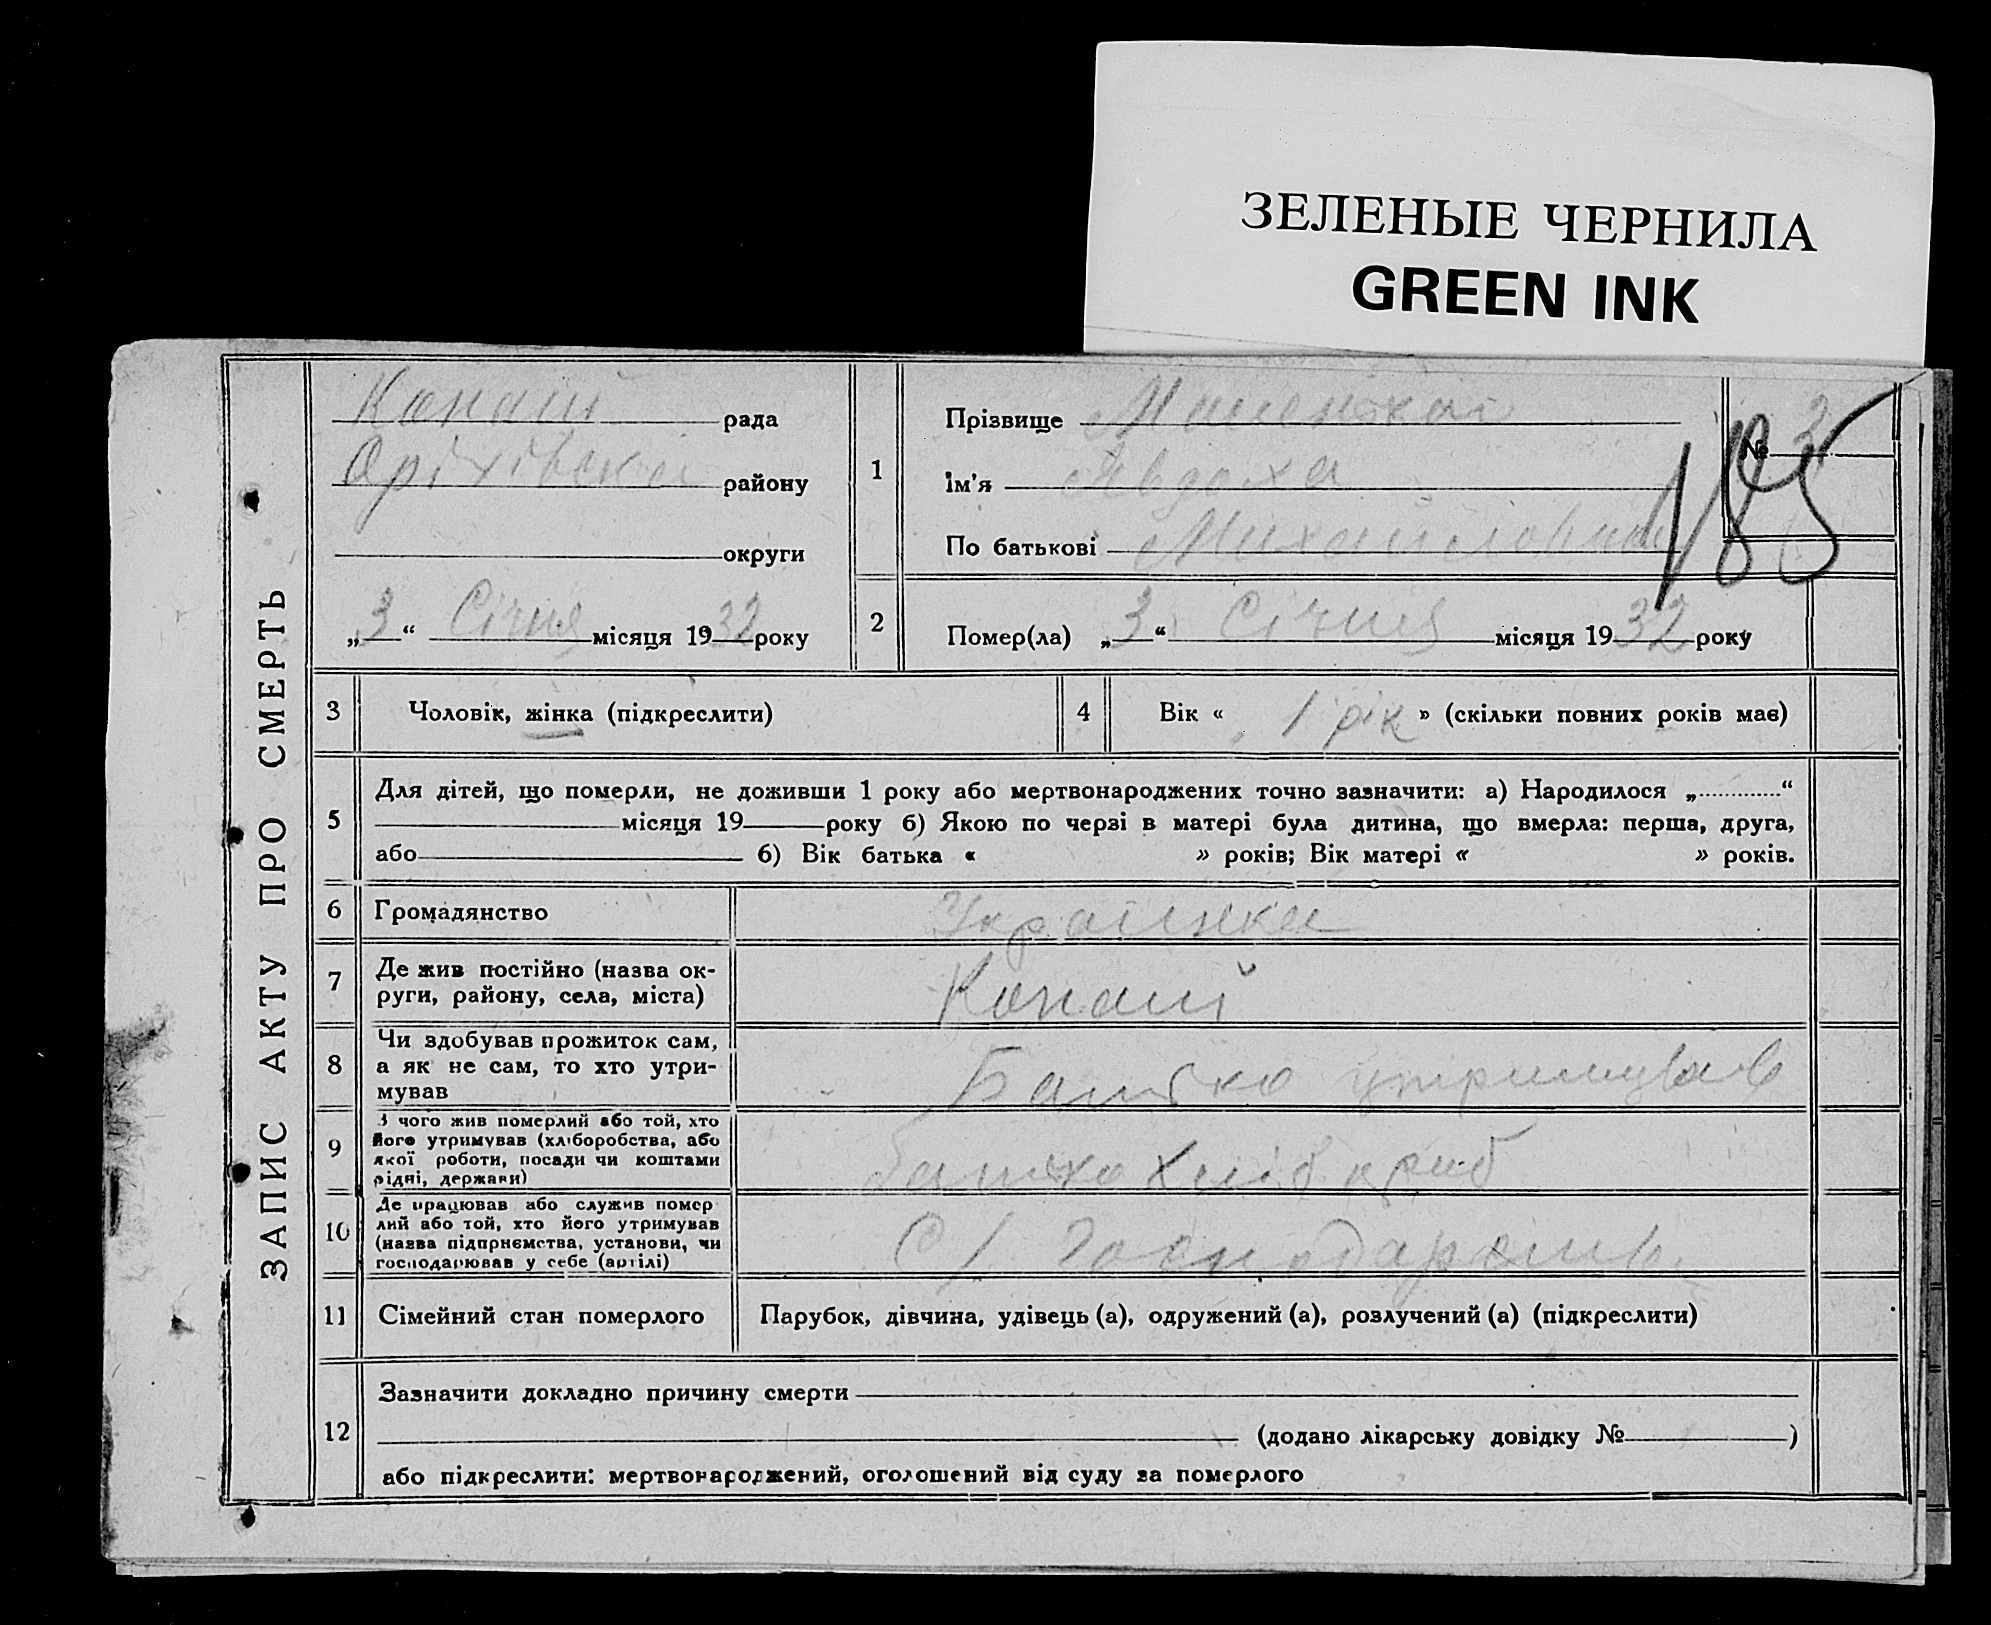 ЗЕЛЕНЫЕ ЧЕРНИЛА
GREEN INK
ЗАПИС АКТУ ПРО СМЕРТЬ
Копані рада
Оріхівськ району
округи
„3“ Січня місяця 1932 року
1
Прізвище
Ім'я Явдоха
По батькові Михайловна
№ 2
185
2
Помер(ла) „3“ Січня місяця 1932 року
3 Чоловік, жінка (підкреслити)
4 Вік « 1 рік » (скільки повних років має)
5
Для дітей, що померли, не доживши 1 року або мертвонароджених точно зазначити: а) Народилося „............“
місяця 19 року б) Якою по черзі в матері була дитина, що вмерла: перша, друга,
або б) Вік батька « » років; Вік матері « » років.
6 Громадянство Українка
7
Де жив постійно (назва ок-
руги, району, села, міста)
Копані
8
Чи здобував прожиток сам,
а як не сам, то хто утри-
мував
Батько утримував
9
З чого жив померлий або той, хто
його утримував (хліборобства, або
якої роботи, посади чи коштами
рідні, держави)
батько хлібороб
10
Де працював або служив помер
лий або той, хто його утримував
(назва підпрнємства, установи, чи
господарював у себе (артілі)
С/господарстві
11 Сімейний стан померлого Парубок, дівчина, удівець (а), одружений (а), розлучений (а) (підкреслити)
12
Зазначити докладно причину смерти
(додано лікарську довідку № )
або підкреслити: мертвонароджений, оголошений від суду за померлого